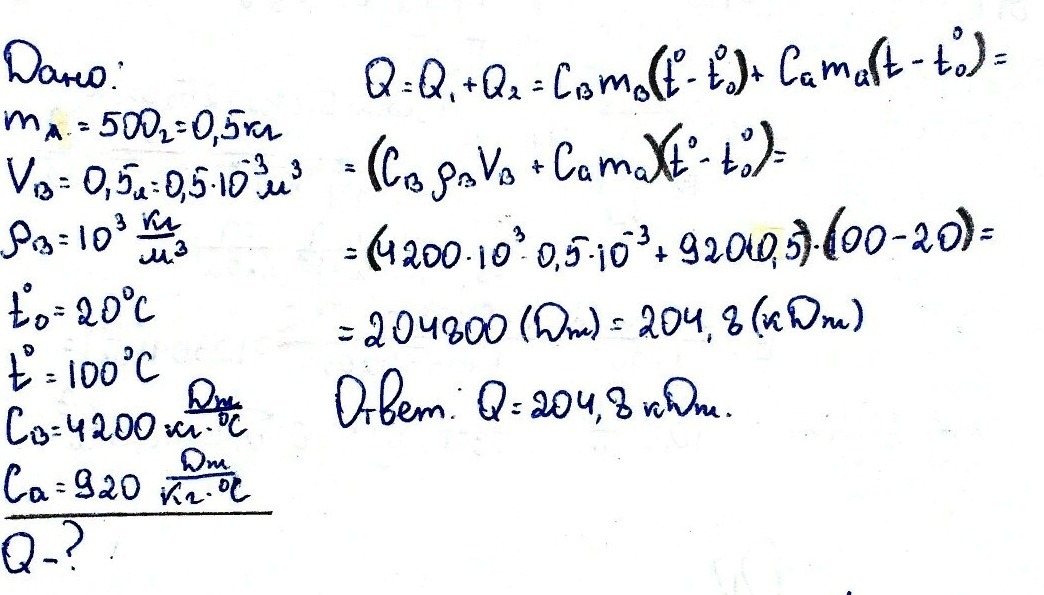 Дано:
mл = 500г = 0,5кг
Vв = 0,5л = 0,5·10⁻³м³
ρв = 10³ кг/м³
t°₀ = 20°C
t° = 100°C
Cв = 4200 Дж/кг·°C
Cа = 920 Дж/кг·°C
Q - ?
Q = Q₁ + Q₂ = Cв mв (t° - t°₀) + Cа mа (t - t°₀) =
= (Cв ρв Vв + Cа mа)(t° - t°₀) =
= (4200·10³·0,5·10⁻³ + 920·0,5)·(100 - 20) =
= 204800 (Дж) = 204,8 (кДж)
Ответ: Q = 204,8 кДж.